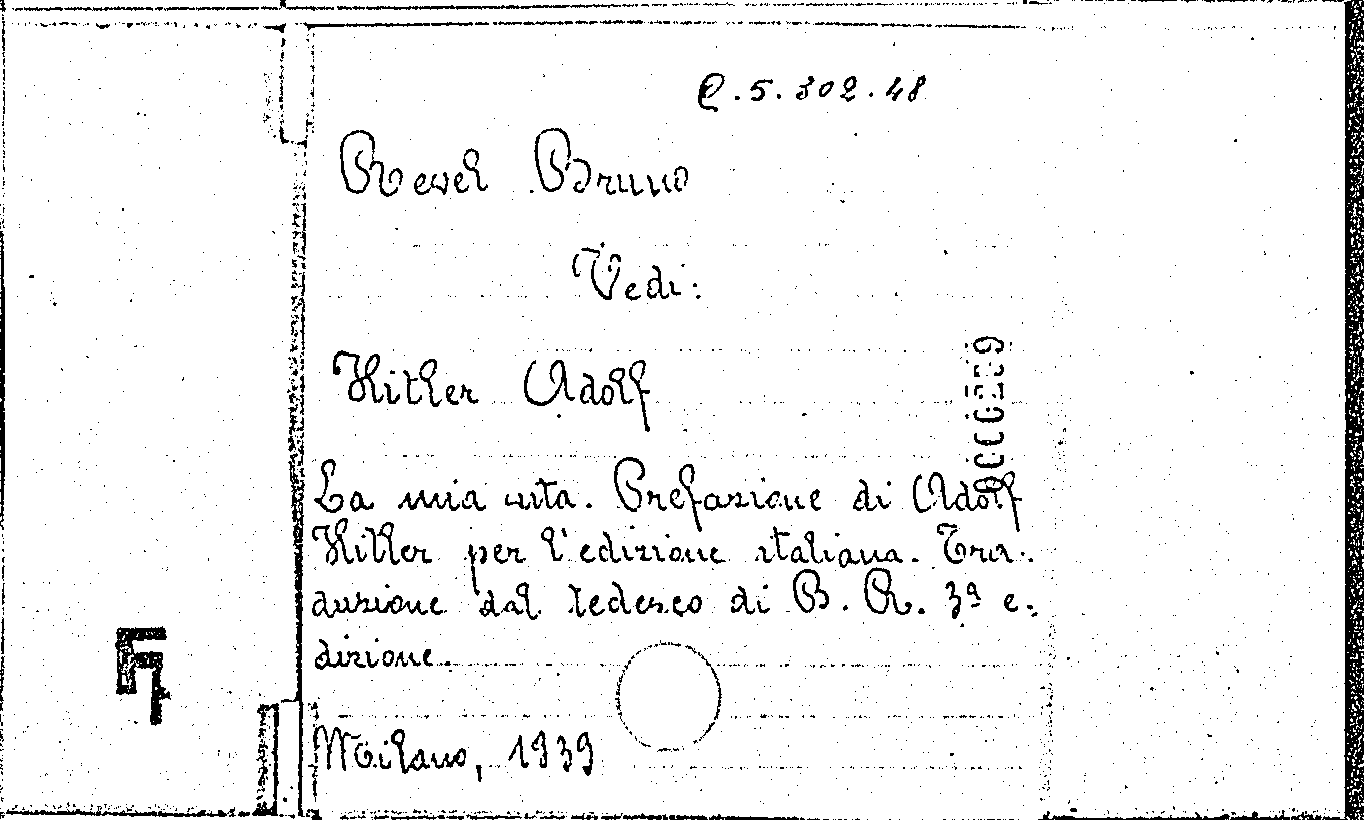 C.5.302.48
Revel Bruno
Vedi:
Hitler Adolf
La mia vita. Prefazione di Adolf
Hitler per l'edizione italiana. Tra-
duzione dal tedesco di B. R. 3ª e-
dizione.
Milano, 1939